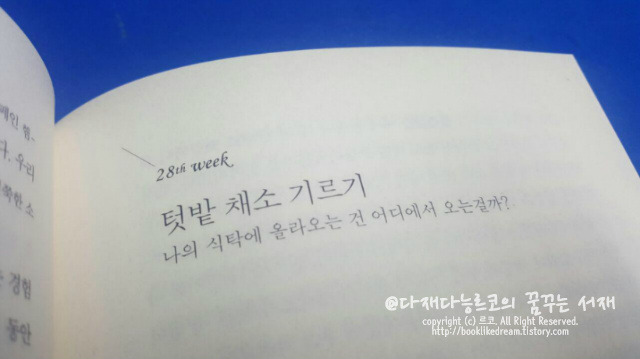 28th week
텃밭 채소 기르기
나의 식탁에 올라오는 건 어디에서 오는걸까?
다. 우리
경험
동안
@다재다능르코의 꿈꾸는 서재
copyright (c) 르코. All Right Reserved.
http://booklikedream.tistory.com